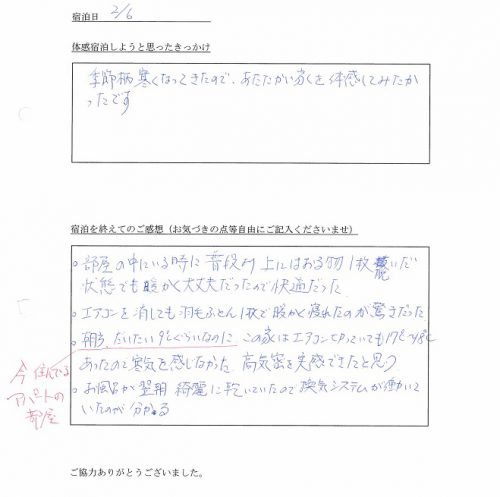 宿泊日 2/6
体感宿泊しようと思ったきっかけ
季節柄寒くなってきたので、あたたかい家を体感してみたか
ったです
宿泊を終えてのご感想（お気づきの点等自由にご記入くださいませ）
・部屋の中にいる時に普段より上にはおる物1枚脱いだ
状態でも暖かく大丈夫だったので快適だった
・エアコンを消しても羽毛ふとん1枚で暖かく寝れたのが驚きだった
・朝方、だいたい9℃ぐらいなのに この家はエアコン切っていても17℃~18℃
あったので寒気を感じなかった、高気密を実感できたと思う
・お風呂が翌朝 綺麗に乾いていたので換気システムが働いて
いたのが分かる
今住んでる
アパートの
部屋
ご協力ありがとうございました。